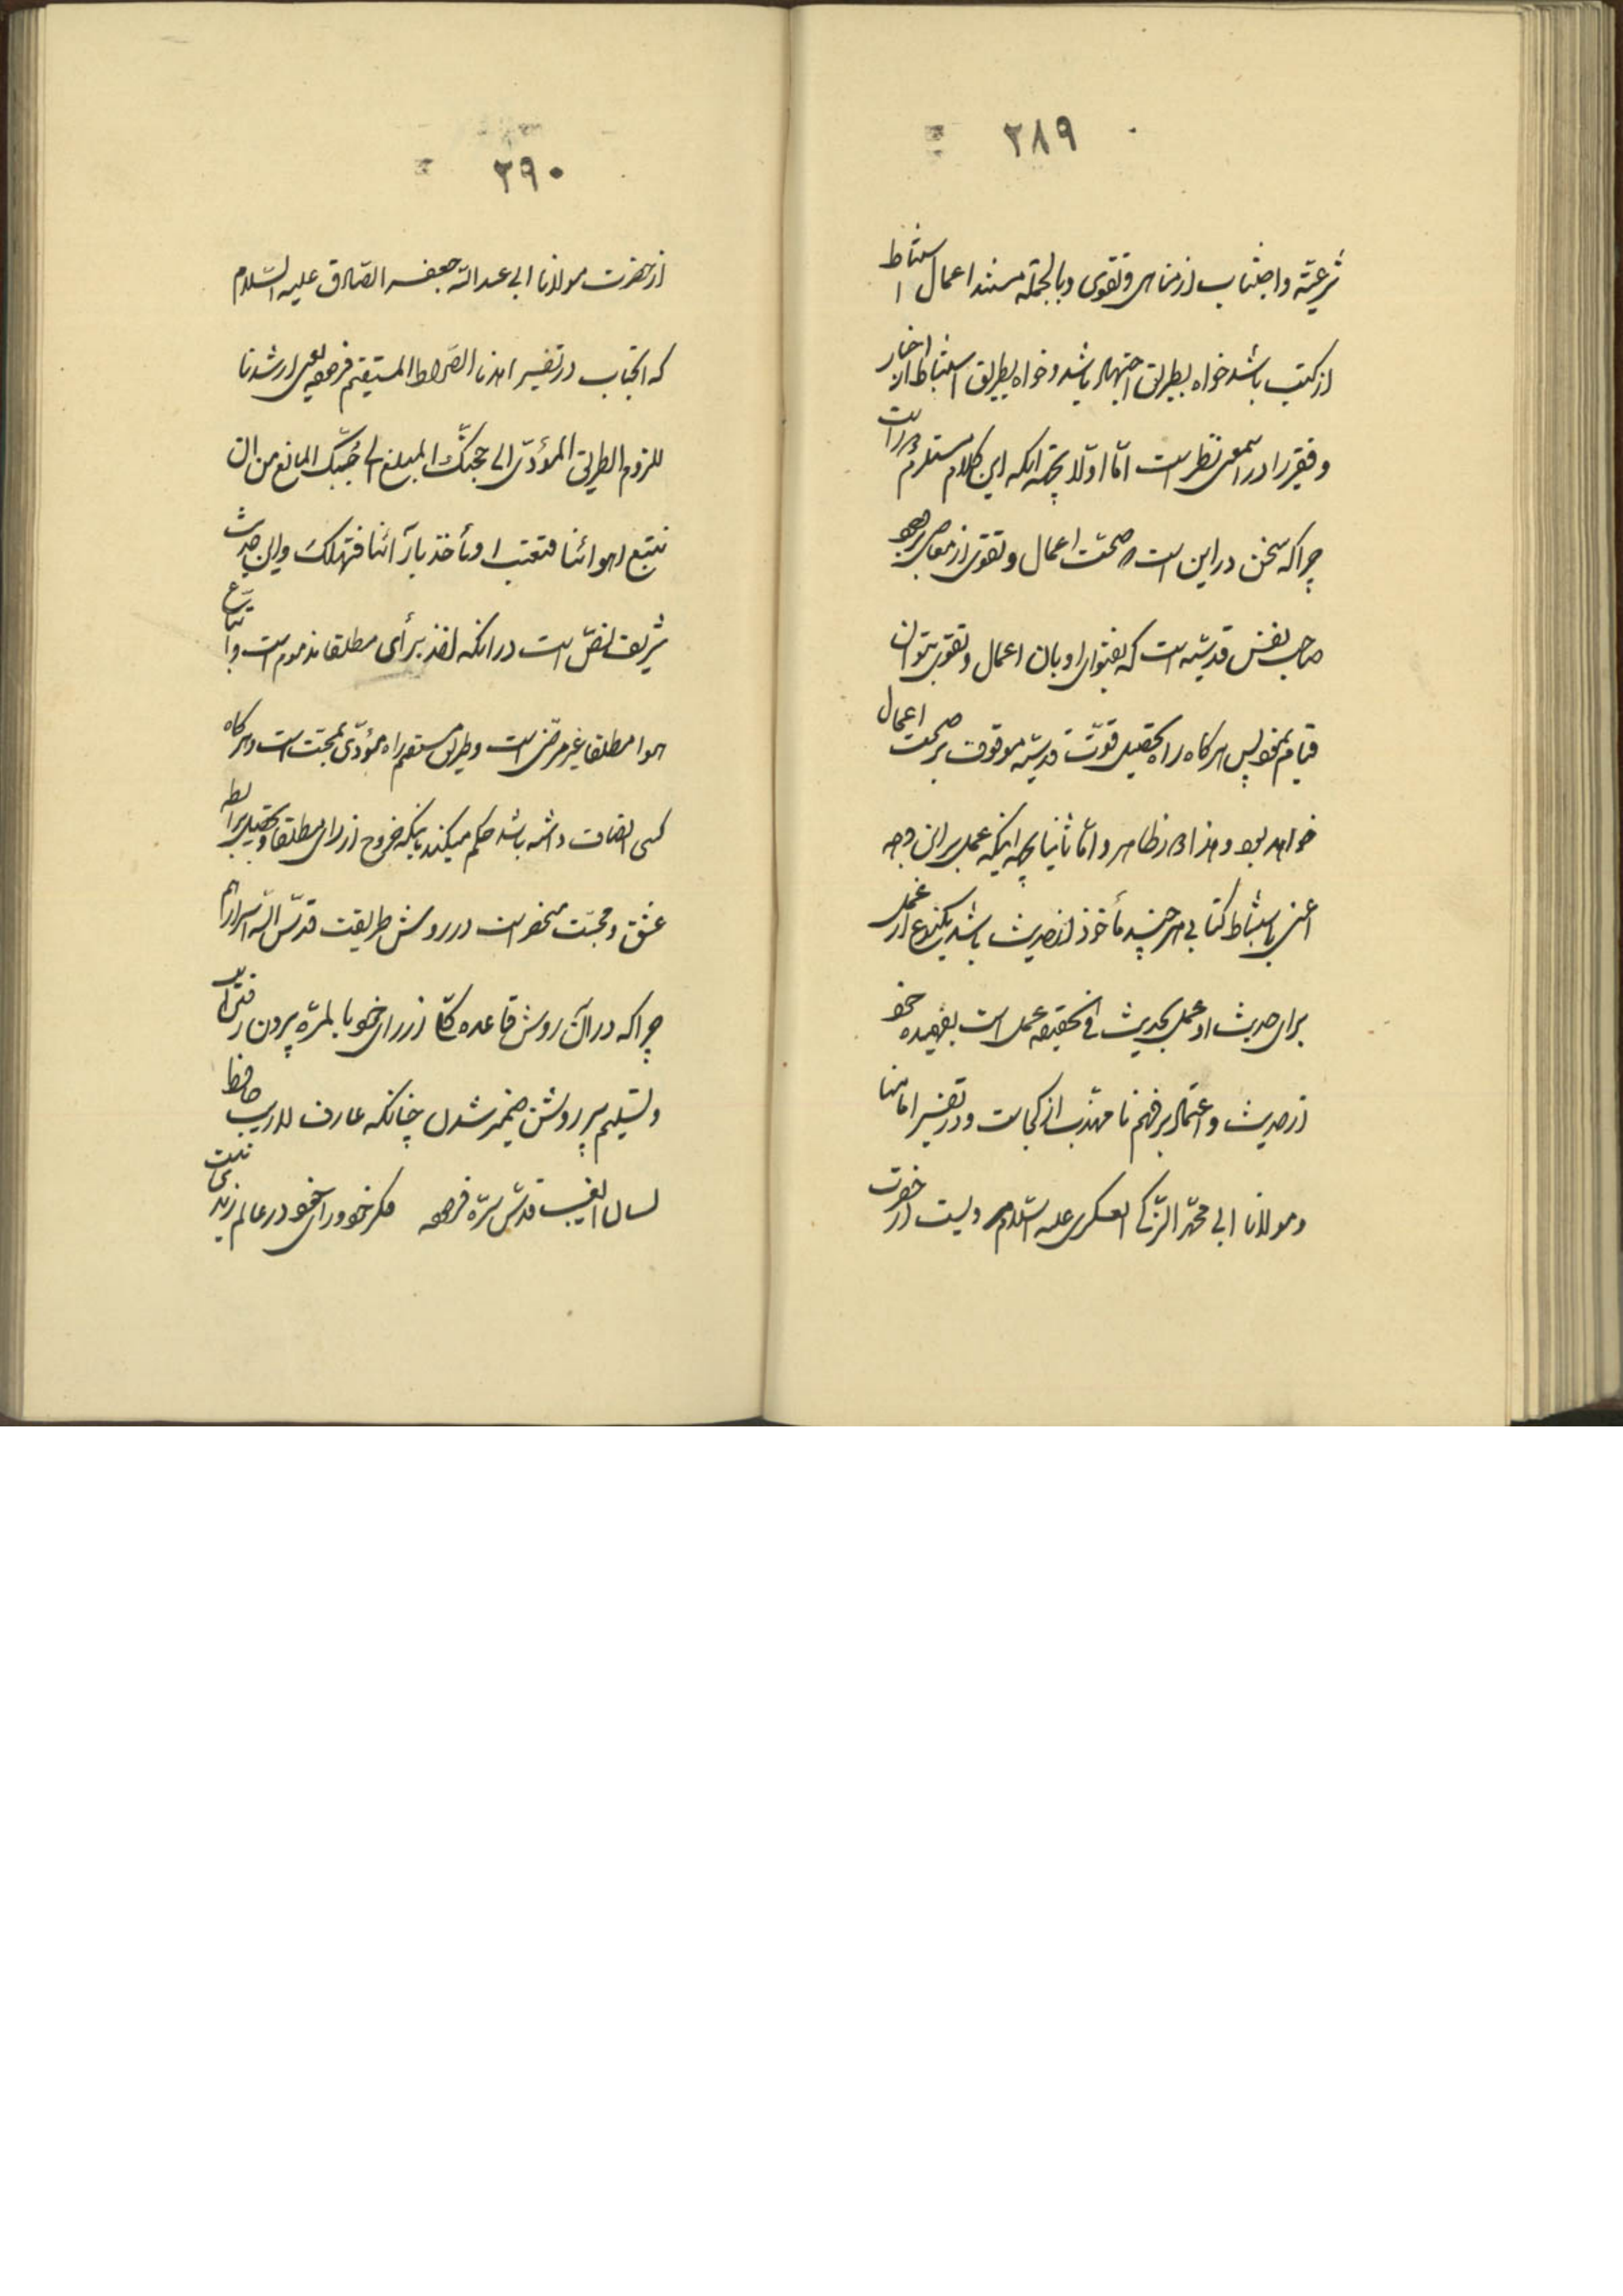 ۲۸۹
شرعیّه واجتناب از مناهی و تقوی وبالجمله مستند اعمال استنباط
از کتب باشد خواه بطریق اجتهاد باشد و خواه بطریق استنباط از اخبار
و فقیر را در اینمعنی نظر است امّا اوّلا بجهة انکه این کلام مستلزم دور است
چرا که سخن در این است که صحّت اعمال و تقوی از معاصی
صاحب نفس قدسیّه است که بفتوای او بان اعمال و تقوی بتوان
قیام نمود پس هرگاه راه تحصیل قوّت قدسیّه موقوف بر صحّت اعمال
خواهد بود و هذا دور ظاهر و امّا ثانیا بجهة اینکه عمل بر این وجه
اعنی باستنباط کتابی هر چند مأخوذ از حدیث باشد یکنوع از عمل
برای حدیث او عمل بحدیث فی الحقیقه عمل است بفهمیده خود
از حدیث و اعتماد بر فهم نا مهذّب از کجاست و در تفسیر امامنا
و مولانا ابی محمّد الزّکی العسکری علیه السّلام از حضرت
۲۹۰
از حضرت مولانا ابی عبد الله جعفر الصّادق علیه السّلام
که انجناب در تفسیر اهدنا الصّراط المستقیم فرموده یعنی ارشدنا
للزوم الطریق المؤدّی الی محبّتک المبلغ الی جنّتک المانع من ان
نتبع اهوائنا فنعطب او نأخذ بآرائنا فنهلک و این حدیث
شریف نصّ است در انکه اخذ برأی مطلقا مذموم است و اتباع
هوا مطلقا غیر مرضی است و طریق مستقیم راه مؤدّی بمحبّت است و هرگاه
کسی انصاف داشته باشد حکم میکند باینکه خروج از رای مطلقا و تحصیل رابطه
عشق و محبّت منحصر است در روش طریقت قدّس الله اسرارهم
چرا که در آن روش قاعده کلّا از رای خود بالمرّه بیرون رفتن است
و تسلیم پیر روشن ضمیر شدن چنانکه عارف للاریب حافظ
لسان الغیب قدّس سرّه فرموده فکر خود و رای خود در عالم رندی نیست